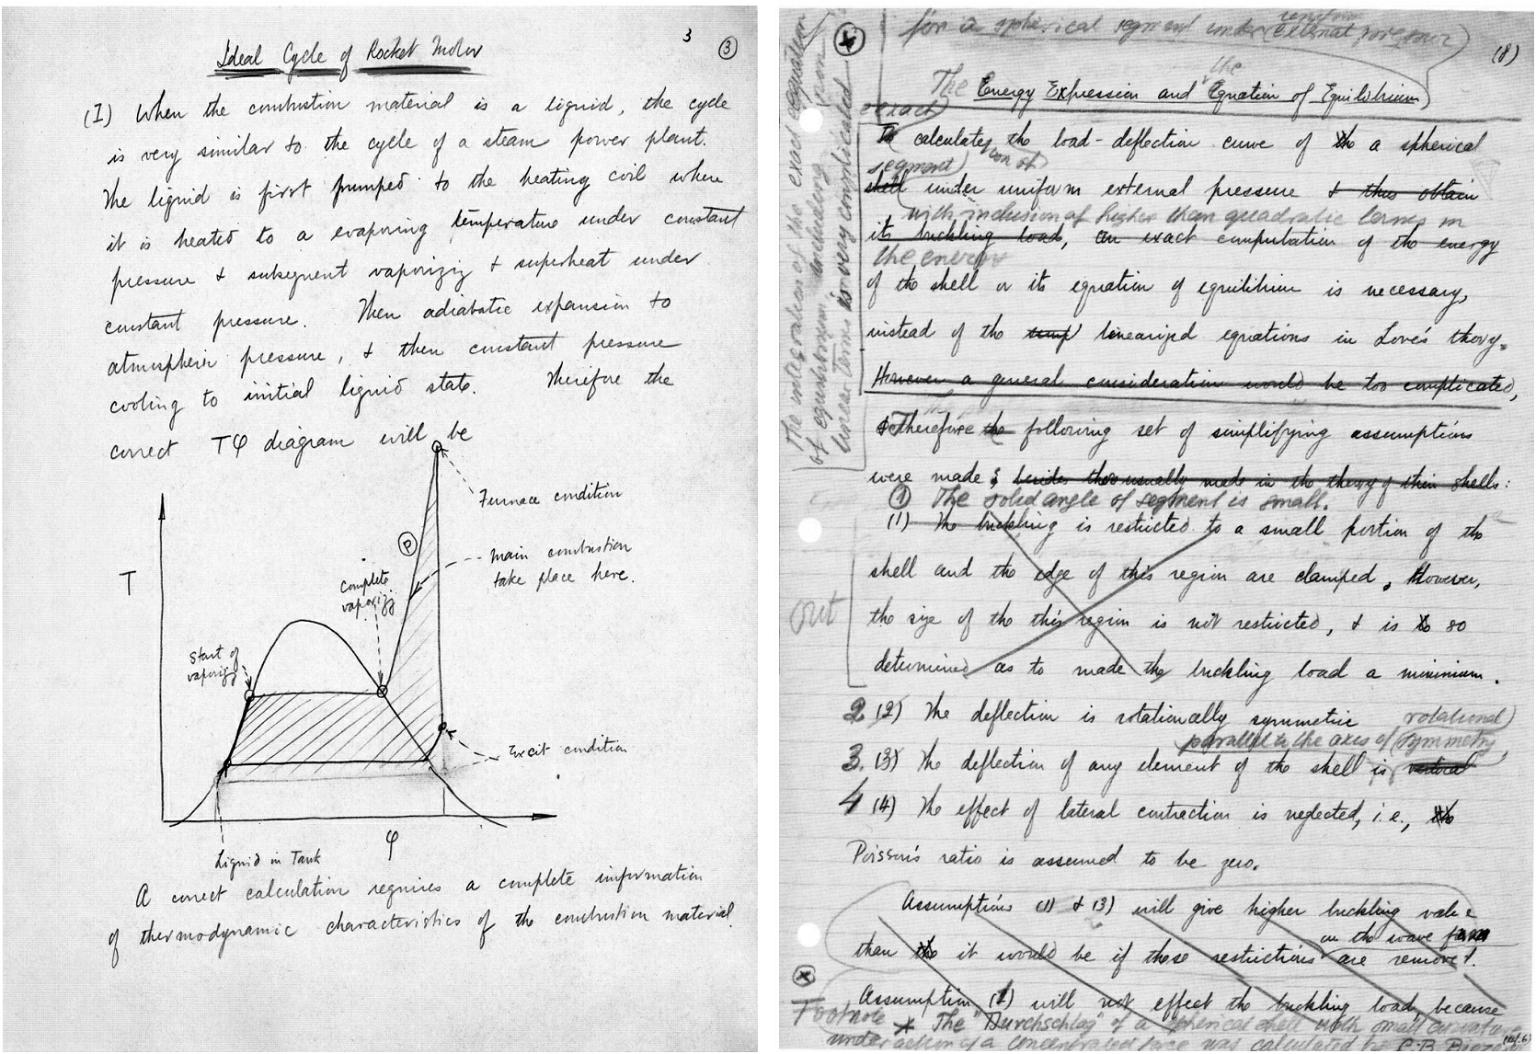 3
3
Ideal Cycle of Rocket Motor
(I) When the combustion material is a liquid, the cycle
is very similar to the cycle of a steam power plant.
The liquid is first pumped to the heating coil where
it is heated to a evaporing temperature under constant
pressure & subsequent vaporizig & superheat under
constant pressure. Then adiabatic expansion to
atmospheric pressure, & then constant pressure
cooling to initial liquid state. Therefore the
correct Tφ diagram will be
Furnace condition
P
main combustion
take place here.
Complete
vaporizig
T
Start of
vaporizig
Exit condition
φ
Liquid in Tank
A correct calculation requires a complete information
of thermodynamic characteristics of the combustion material.
for a spherical segment under uniform external pressure
(8)
The Energy Expression and the Equation of Equilibrium
exact
To calculate the load-deflection curve of the a spherical
segment
shell under uniform external pressure & thus obtain
with inclusion of higher than quadratic terms in
its buckling load, an exact computation of the energy
the energy
of the shell or its equation of equilibrium is necessary,
instead of the linearized equations in Love's thory.
However a general consideration would be too complicated,
The integration of the exact equation
of equilibrium including non
linear terms is very complicated
& Therefore the following set of simplifying assumptions
were made ; besides those usually made in the theory of thin shells:
1 The solid angle of segment is small.
(1) The buckling is restricted to a small portion of the
shell and the edge of this region are clamped. However,
out
the size of the this region is not restricted, & is to so
determined as to made the buckling load a minimum.
2 (2) The deflection is rotationally symmetric rotational
parallel to the axis of symmetry
3. (3) The deflection of any element of the shell is vertical
4 (4) The effect of lateral contraction is neglected, i.e., the
Poisson's ratio is assumed to be zero.
Assumptions (1) & (3) will give higher buckling value
on the wave form
than the it would be if these restrictions are removed.
Assumption (1) will not effect the buckling load, because
Footnote * The "Durchschlag" of a spherical shell with small curvature
under action of a concentrated force was calculated by C.B. Biezeno